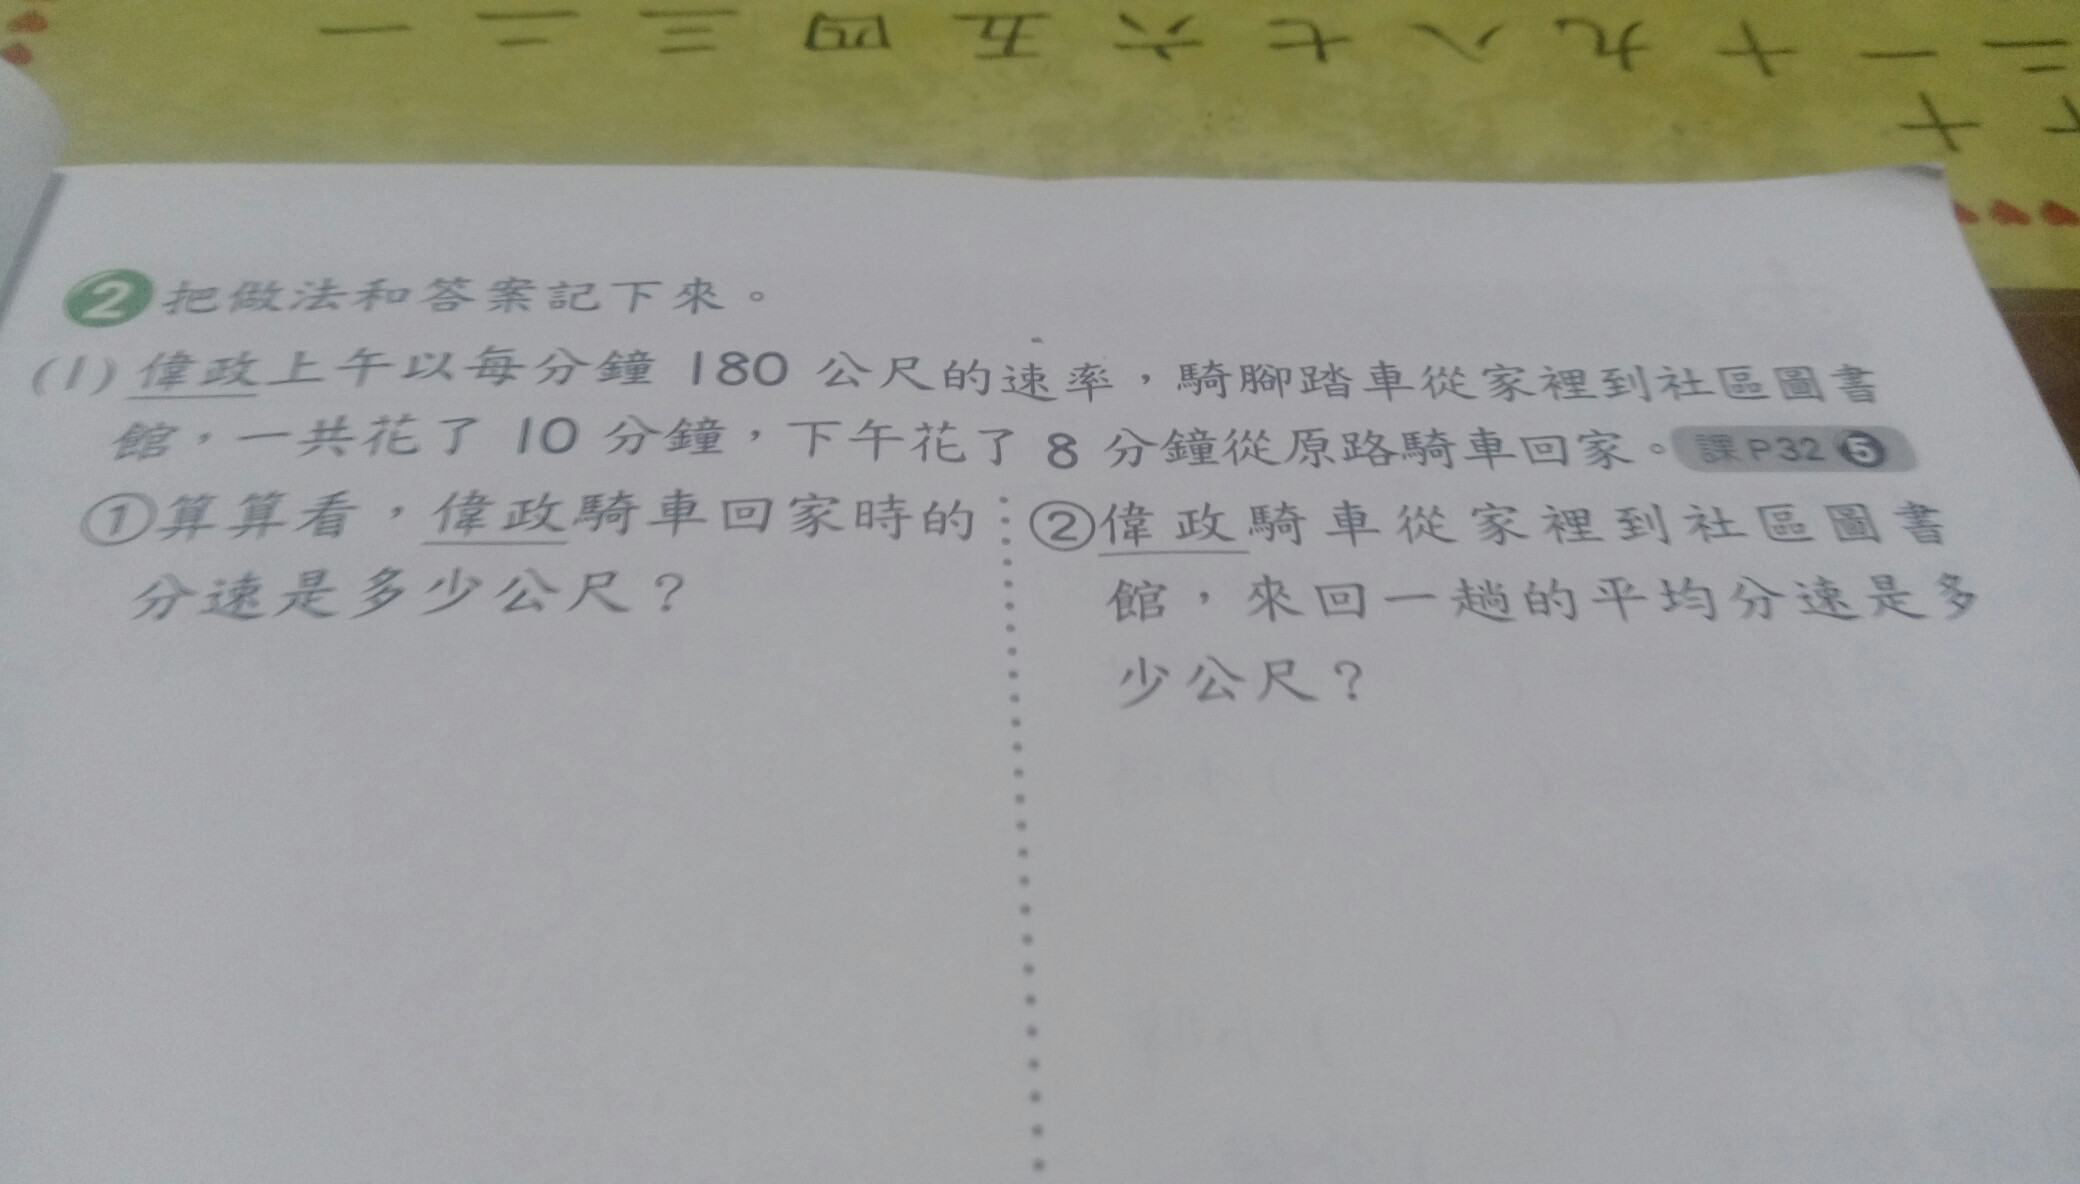 一 二 三 四 五 六 七 八 九 十 一 二
十
2 把做法和答案記下來。
(1) 偉政上午以每分鐘 180 公尺的速率，騎腳踏車從家裡到社區圖書
館，一共花了 10 分鐘，下午花了 8 分鐘從原路騎車回家。 課P32 5
①算算看，偉政騎車回家時的
分速是多少公尺？
②偉政騎車從家裡到社區圖書
館，來回一趟的平均分速是多
少公尺？